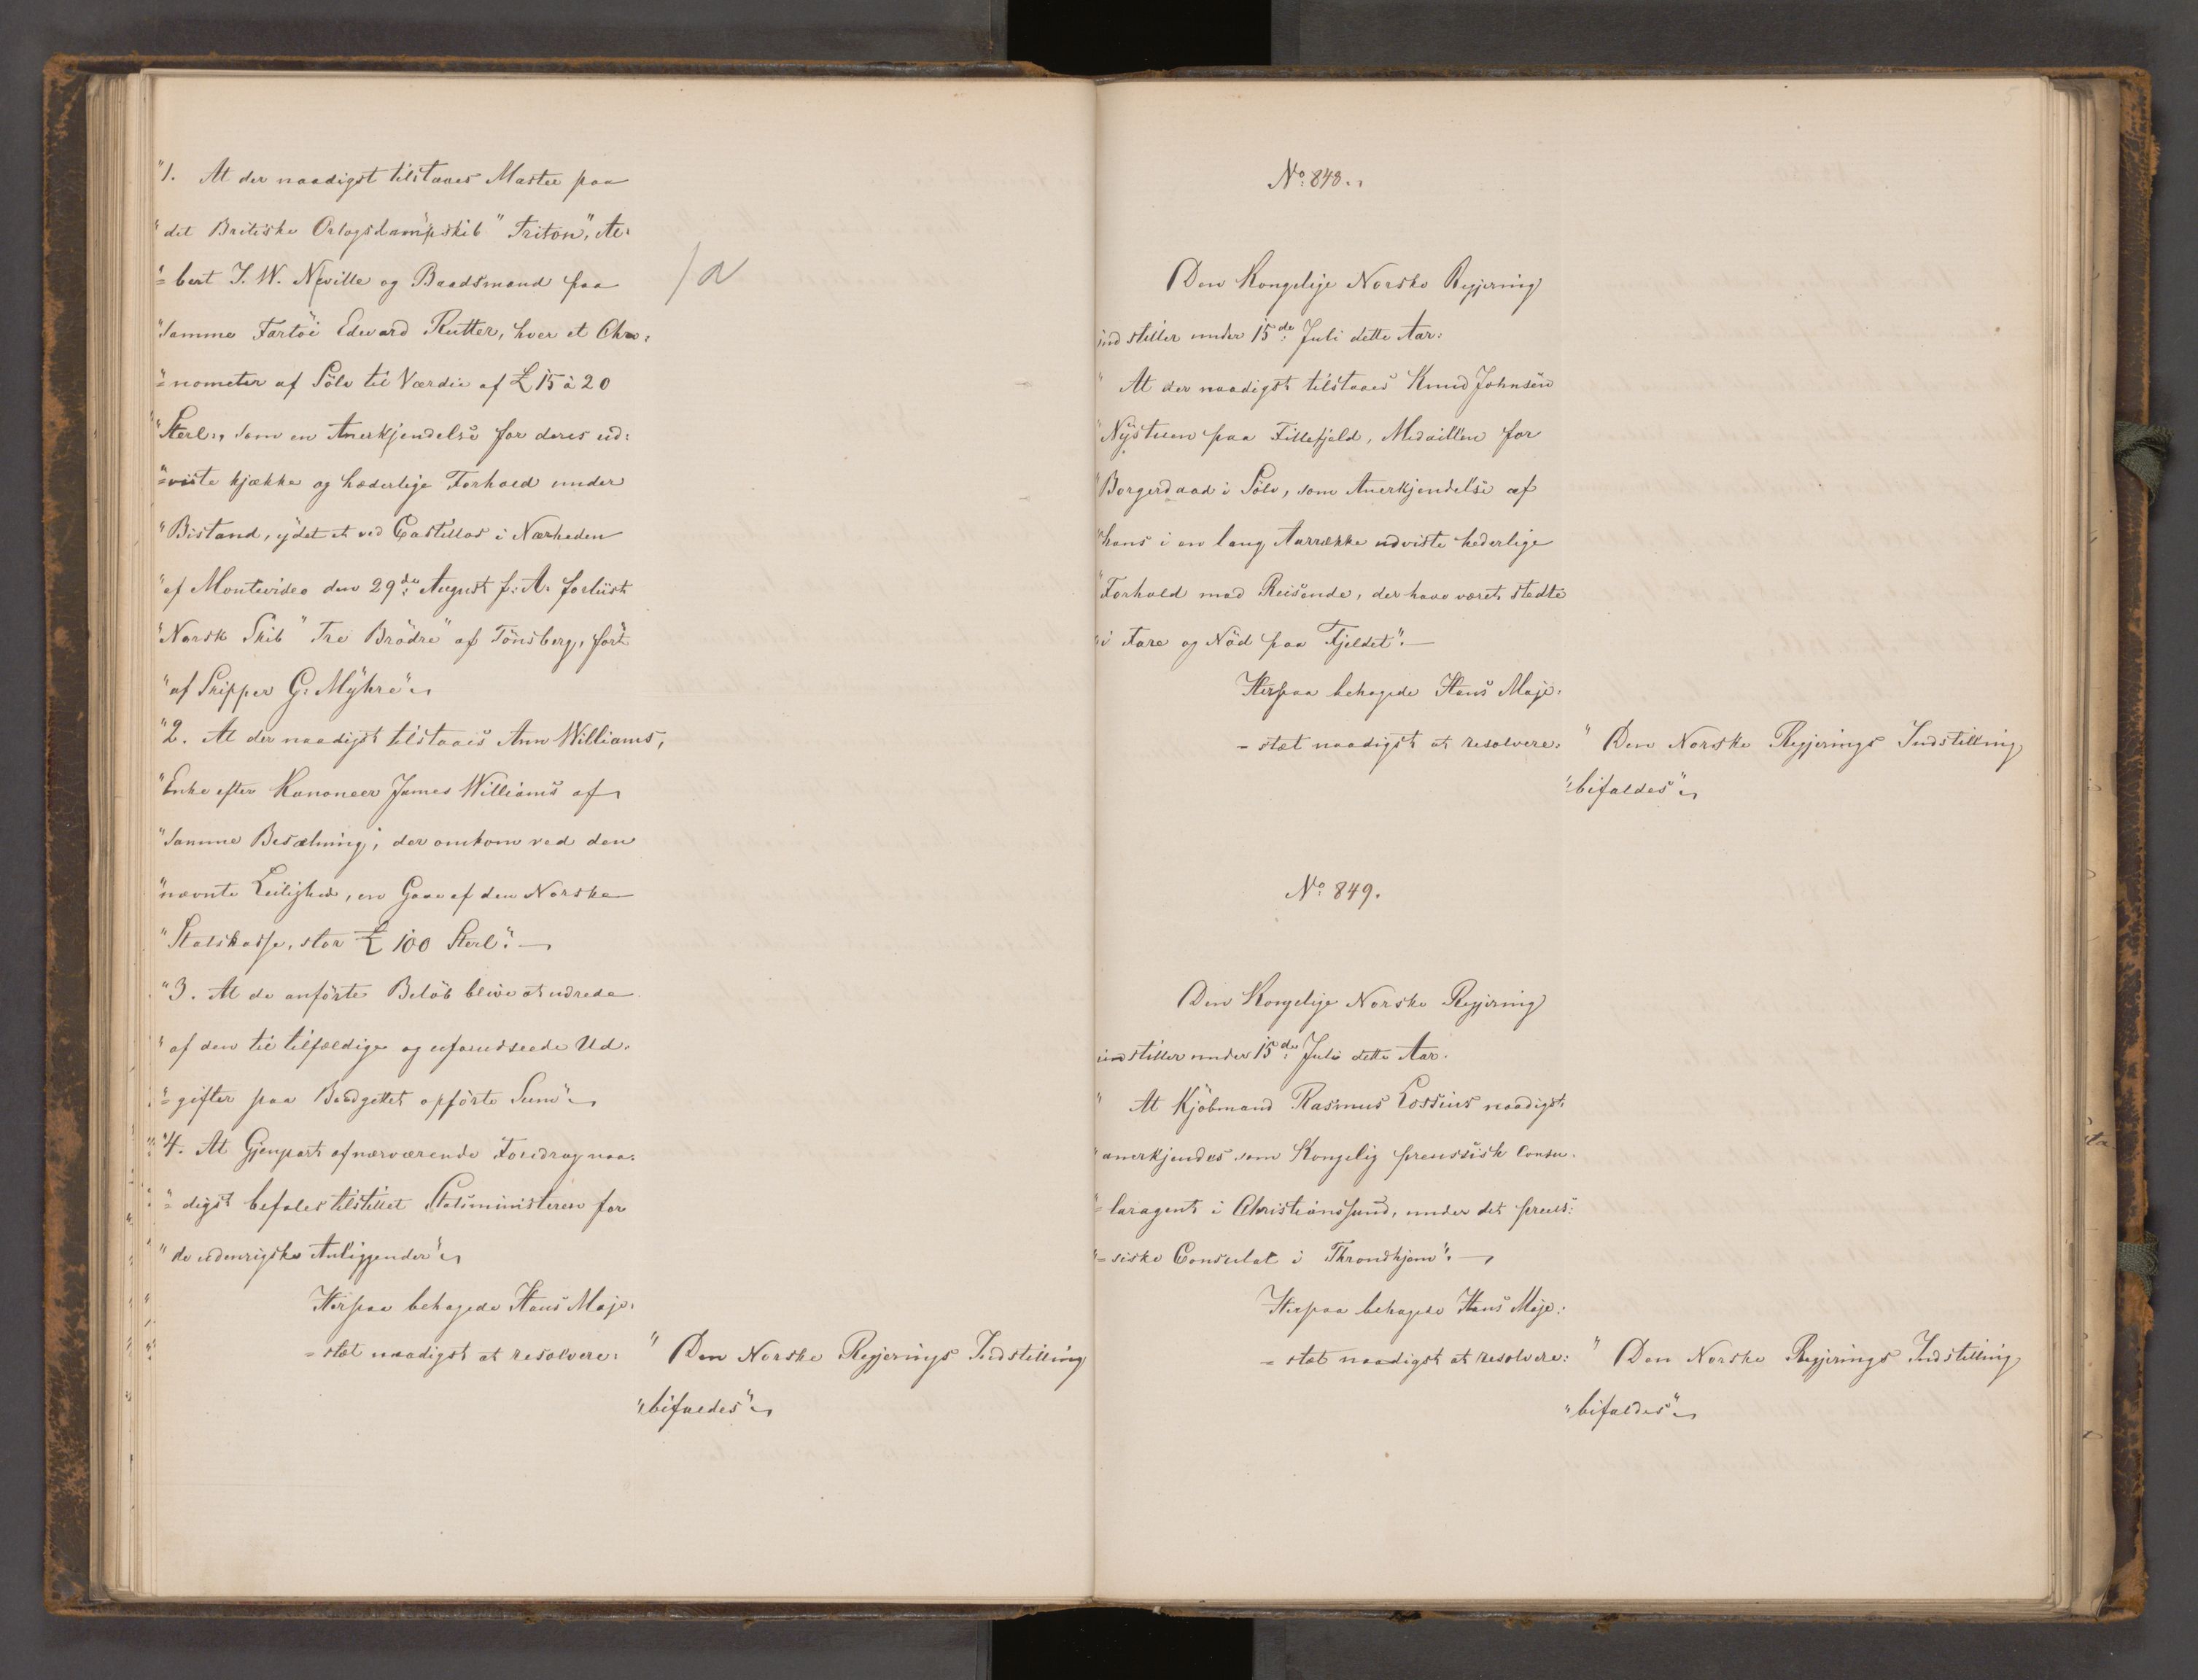 "1. At der naadigst tilstaaes Master paa
"det Britiske Orlogsdampskib "Triton", Al:
"=bert J. W. Neville og Baadsmand paa
"samme Fartöi Edward Rutter, hver et Chro:
"=nometer af Sölv til Værdie af £ 15 à 20
"Sterl:, som en Anerkjendelse for deres ud:
"=viste kjække og hæderlige Forhold under
"Bistand, ydet et ved Castillos i Nærheden
"af Montevideo den 29de August f: A: forliist
"Norsk Skib "Tre Brödre" af Tönsberg, fört
"af Skipper G: Myhre".
"2. At der naadigst tilstaaes Ann Williams,
"Enke efter Kanoneer James Williams af
"samme Besætning, der omkom ved den
"nævnte Leilighed, en Gave af den Norske
"Statskasse, stor £ 100 Sterl".
"3. At de anförte Belöb blive at udrede
"af den til tilfældige og uforudseede Ud:
"=gifter paa Budgettet opförte Sum".
"4. At Gjenpart af nærværende Foredrag naa:
"=digst befales tilstillet Statsministeren for
"de udenrigske Anliggender".
Herpaa behagede Hans Maje:
=stæt naadigst at resolvere: "Den Norske Regjerings Indstilling
"bifaldes".
No: 848.
Den Kongelige Norske Regjering
indstiller under 15de: Juli dette Aar:
"At der naadigst tilstaaes Knud Johnsen
"Nystuen paa Fillefjeld, Medaillen for
"Borgerdaad i Sölv, som Anerkjendelse af
"hans i en lang Aarrække udviste hederlige
"Forhold mod Reisende, der have været stedte
"i Fare og Nöd paa Fjeldet".
Herpaa behagede Hans Maje:
=stæt naadigst at resolvere: "Den Norske Regjerings Indstilling
"bifaldes".
No: 849.
Den Kongelige Norske Regjering
indstiller under 15de: Juli dette Aar.
"At Kjöbmand Rasmus Lossius naadigst
"anerkjendes som Kongelig preussisk Consu:
"=laragent i Christianssund, under det preus:
"=siske Consulat i Throndhjem".
Herpaa behagede Hans Maje:
=stæt naadigst at resolvere: "Den Norske Regjerings Indstilling
"bifaldes".